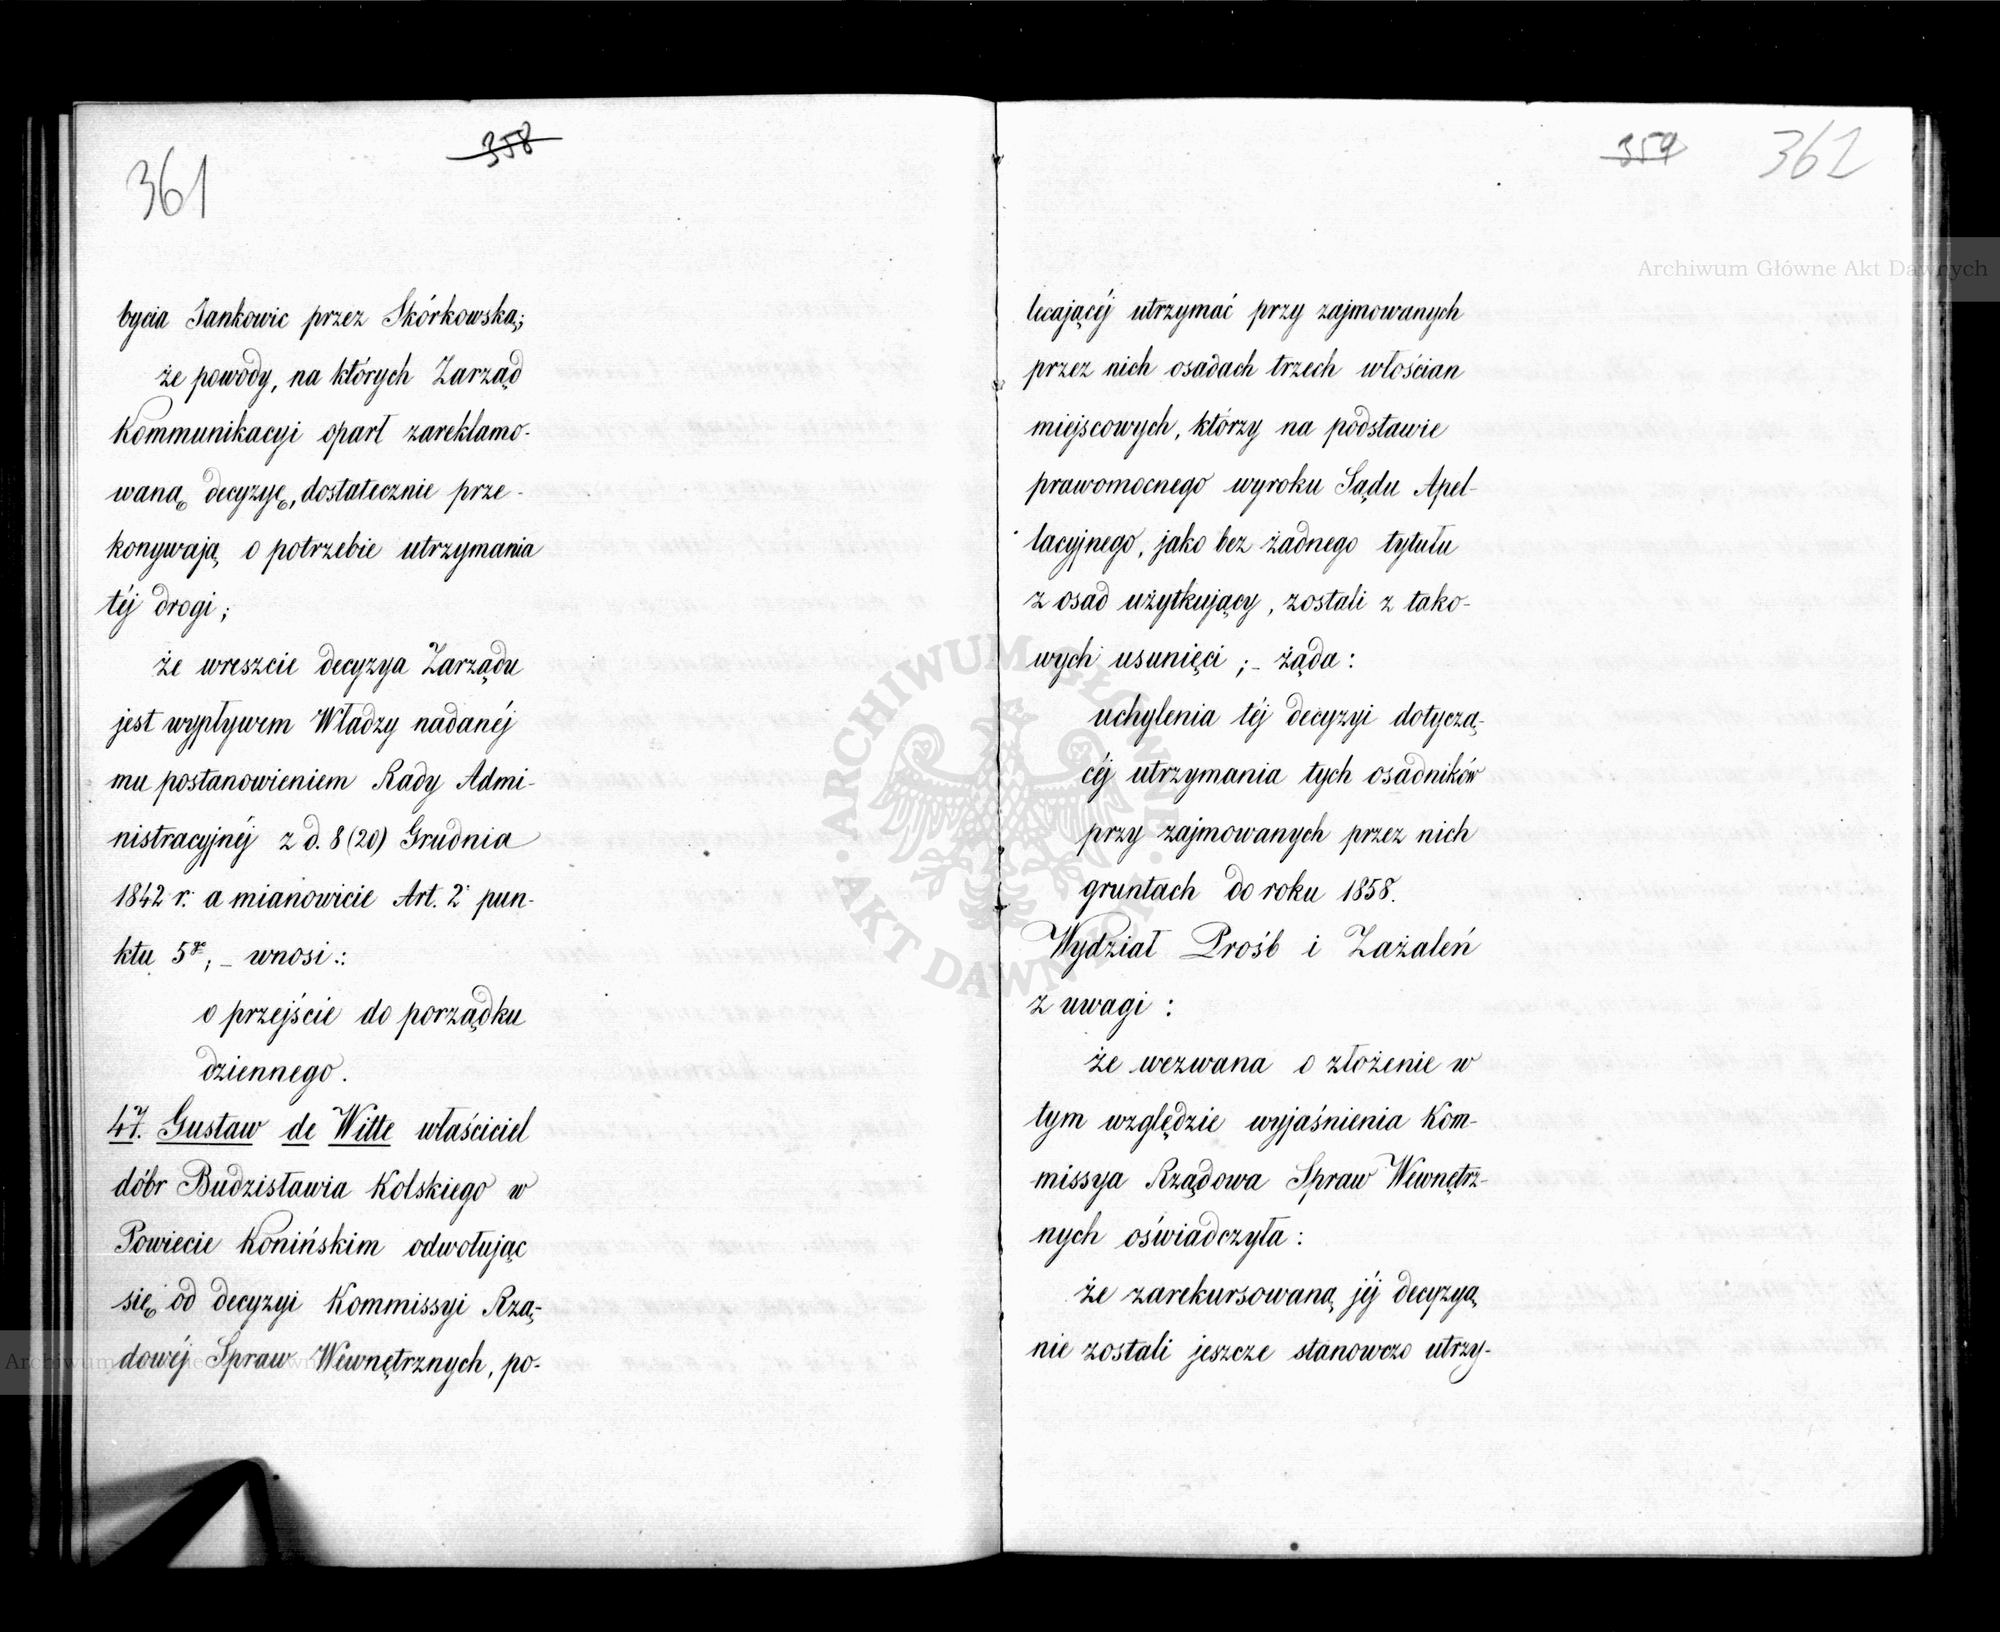 361
358
bycia Jankowic przez Skórkowską;
że powody, na których Zarząd
Kommunikacyi oparł zareklamo-
waną decyzyę, dostatecznie prze-
konywają o potrzebie utrzymania
téj drogi;
że wreszcie decyzya Zarządu
jest wypływem Władzy nadanéj
mu postanowieniem Rady Admi-
nistracyjnéj z d. 8 (20) Grudnia
1842 r. a mianowicie Art. 2 pun-
ktu 5go; – wnosi:
o przejście do porządku
dziennego.
47. Gustaw de Witte właściciel
dóbr Budzisławia Kolskiego w
Powiecie Konińskim odwołując
się od decyzyi Kommissyi Rzą-
dowéj Spraw Wewnętrznych, po-
359
362
lecającéj utrzymać przy zajmowanych
przez nich osadach trzech włościan
miejscowych, którzy na podstawie
prawomocnego wyroku Sądu Apel-
lacyjnego, jako bez żadnego tytułu
z osad użytkujący, zostali z tako-
wych usunięci; – żąda:
uchylenia téj decyzyi dotyczą-
céj utrzymania tych osadników
przy zajmowanych przez nich
gruntach do roku 1858.
Wydział Prośb i Zażaleń
z uwagi:
że wezwana o złożenie w
tym względzie wyjaśnienia Kom-
missya Rządowa Spraw Wewnętrz-
nych oświadczyła:
że zarekursowaną jéj decyzyą
nie zostali jeszcze stanowczo utrzy-
Archiwum Główne Akt Dawnych
ARCHIWUM GŁÓWNE AKT DAWNYCH